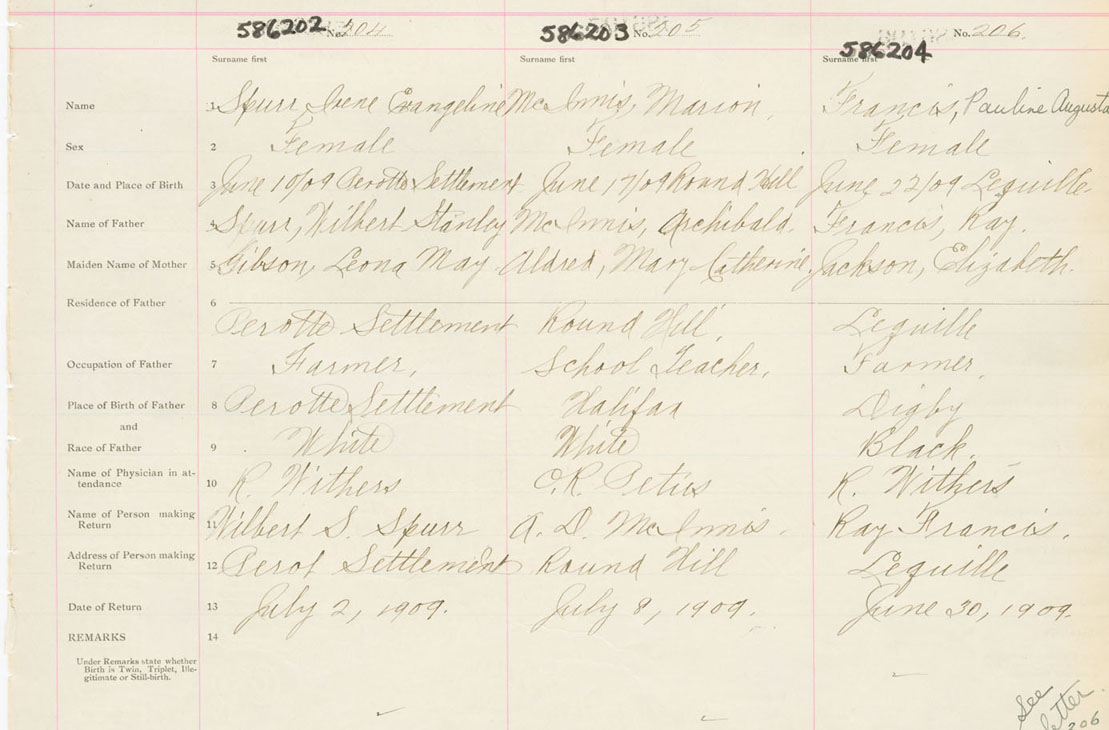 586202 No. 204 586203 No. 205 586204 No. 206
Surname first Surname first Surname first
Name 1 Spurr Irene Evangeline McInnis, Marion, Francis, Pauline Augusta
Sex 2 Female Female Female
Date and Place of Birth 3 June 10/09 Perotte Settlement June 17/09 Round Hill June 22/09 Lequille
Name of Father 4 Spurr, Wilbert Stanley McInnis, Archibald. Francis, Ray.
Maiden Name of Mother 5 Gibson, Leona May. Aldred, Mary Catherine. Jackson, Elizabeth.
Residence of Father 6
Perotte Settlement Round Hill, Lequille
Occupation of Father 7 Farmer, School Teacher, Farmer,
Place of Birth of Father 8 Perotte Settlement Halifax Digby
and
Race of Father 9 White White Black.
Name of Physician in at-
tendance 10 R. Withers R. Withers
Name of Person making
Return 11 Wilbert S. Spurr A. D. McInnis. Ray Francis.
Address of Person making
Return 12 Perot Settlement Round Hill Lequille
Date of Return 13 July 2, 1909. July 8, 1909. June 30, 1909.
REMARKS 14
Under Remarks state whether
Birth is Twin, Triplet, Ille-
gitimate or Still-birth.
See
letter
206